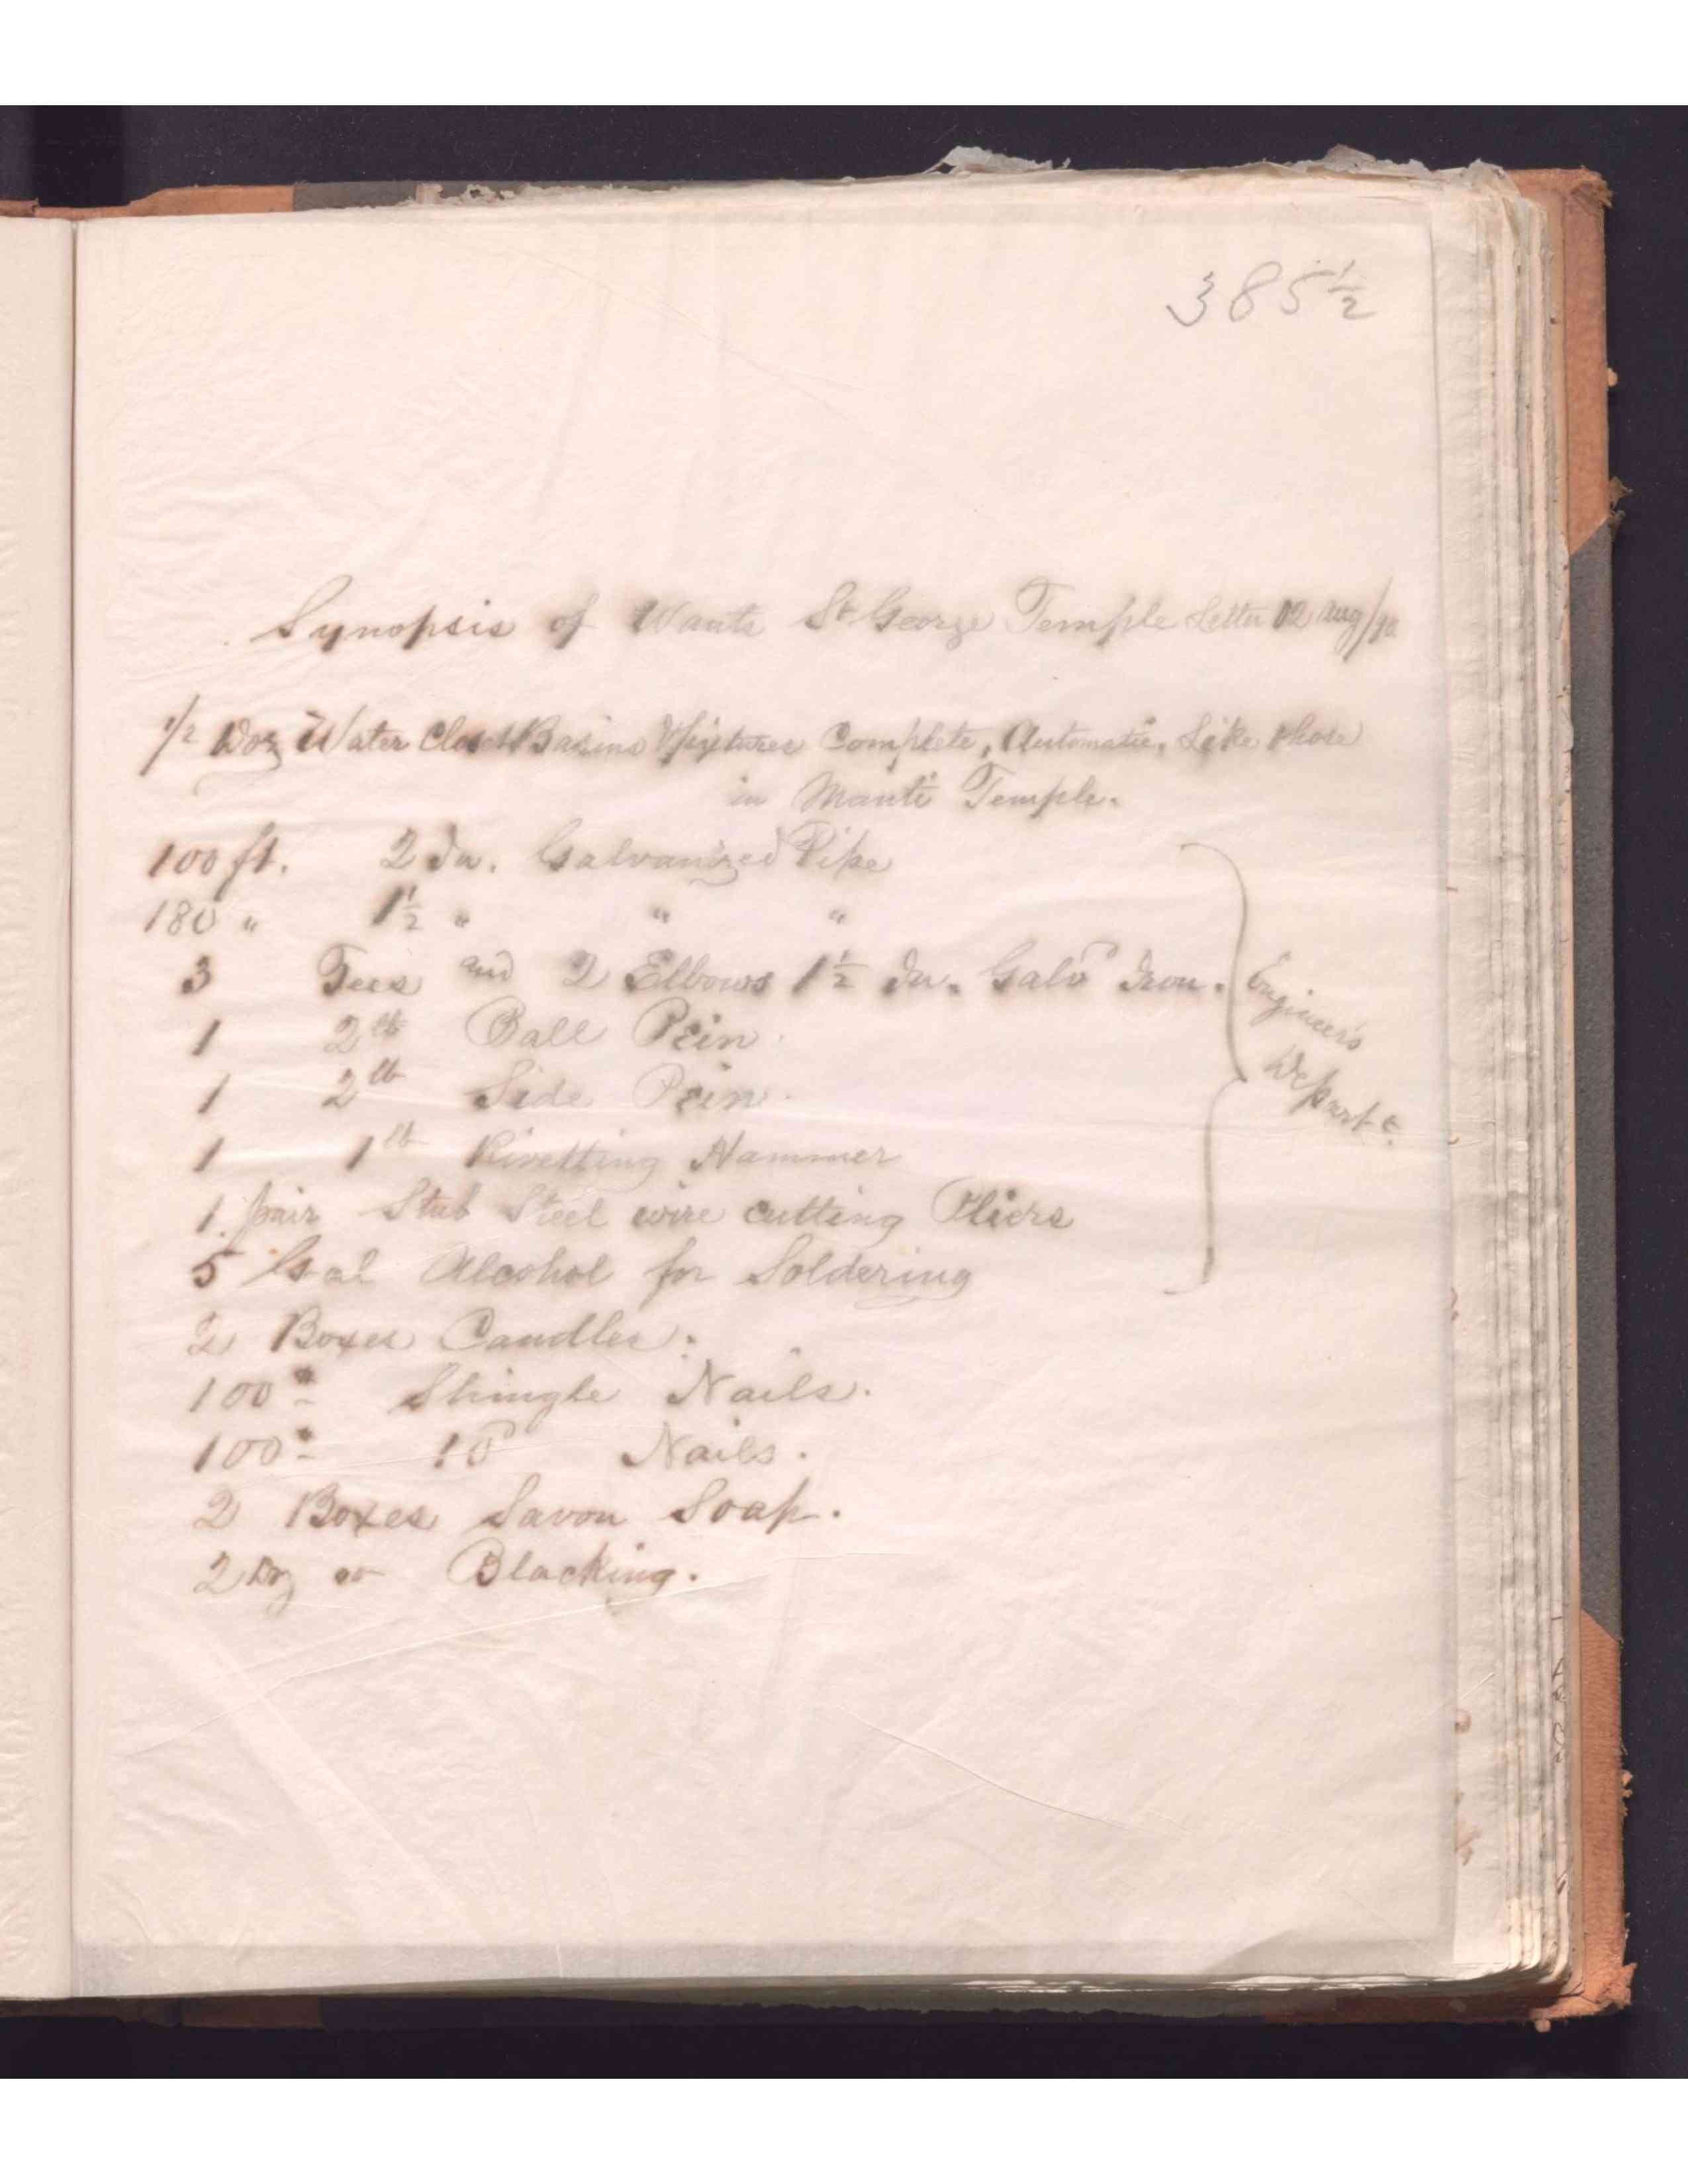 385½
Synopsis of Wants St George Temple Letter 12 Aug/90
1/2 Doz Water Closet Basins & Fixtures Complete, Automatic, Like those
in Manti Temple.
100 ft. 2 In. Galvanized Pipe
180 " 1½ " " "
3 Tees and 2 Elbows 1½ In. Galvd Iron.
Engineers
Depart.
1 2 lb Ball Pein
1 2 lb Side Pein
1 1 lb Rivetting Hammer
1. pair Stub Steel wire cutting Pliers
5 Gal Alcohol for Soldering
2 Boxes Candles.
100 # Shingle Nails.
100 # Nails.
2 Boxes Savon Soap.
2 Doz Blacking.